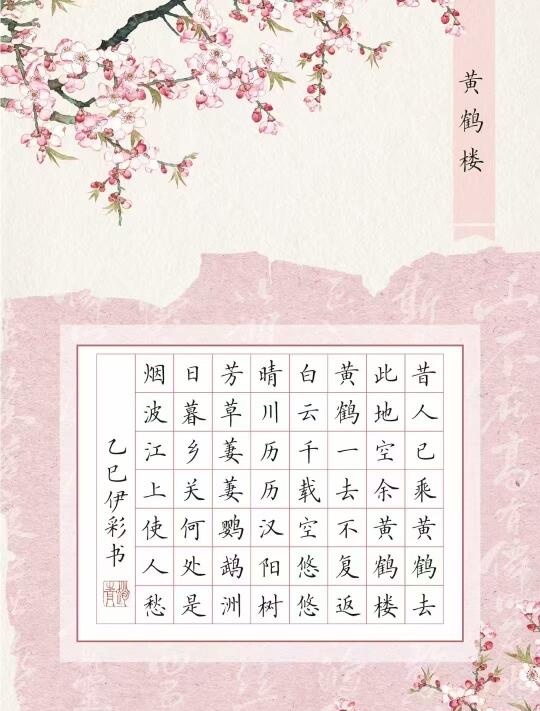 黄鹤楼
昔人已乘黄鹤去
此地空余黄鹤楼
黄鹤一去不复返
白云千载空悠悠
晴川历历汉阳树
芳草萋萋鹦鹉洲
日暮乡关何处是
烟波江上使人愁
乙巳伊彩书